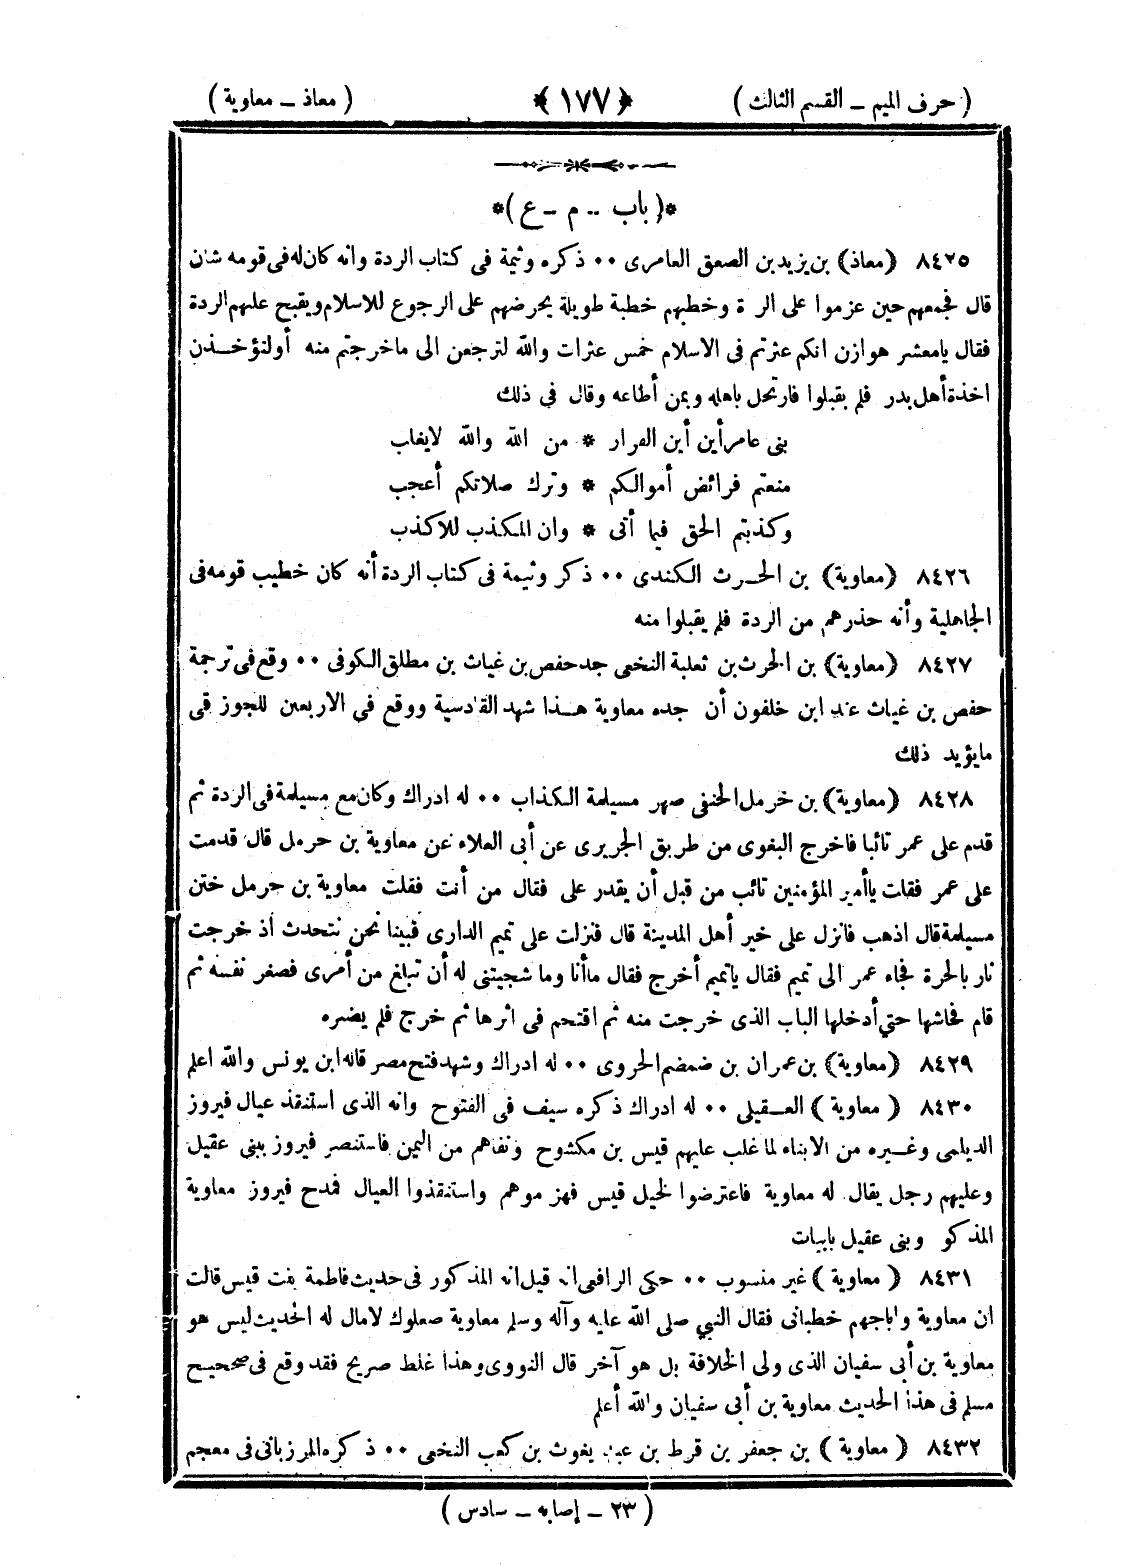 ( حرف الميم ــ القسم الثالث ) ﴿ ١٧٧ ﴾ ( معاذ ــ معاوية )
*( باب .. م ــ ع )*
٨٤٢٥ (معاذ) بن يزيد بن الصعق العامرى ٠٠ ذكره وثيمة فى كتاب الردة وانه كان له فى قومه شان
قال فجمعهم حين عزموا على الر ة وخطبهم خطبة طويلة يحرضهم على الرجوع للاسلام ويقبح عليهم الردة
فقال يامعشر هوازن انكم عثرتم فى الاسلام خمس عثرات والله لترجعن الى ماخرجتم منه أولتؤخــذن
اخذة أهل بدر فلم يقبلوا فارتحل باهله وبمن أطاعه وقال فى ذلك
بنى عامر أين أين الفرار * من الله والله لايغاب
منعتم فرائض أموالكم * وترك صلاتكم أعجب
وكذبتم الحق فيما أتى * وان المكذب للاكذب
٨٤٢٦ (معاوية) بن الحــرث الكندى ٠٠ ذكر وثيمة فى كتاب الردة أنه كان خطيب قومه فى
الجاهلية وأنه حذرهم من الردة فلم يقبلوا منه
٨٤٢٧ (معاوية) بن الحرث بن ثعلبة النخعى جد حفص بن غياث بن مطلق الكوفى ٠٠ وقع فى ترجمة
حفص بن غياث عند ابن خلفون أن جده معاوية هــذا شهد القادسية ووقع فى الاربعين للجوز قى
مايؤيد ذلك
٨٤٢٨ (معاوية) بن خرمل الحنفى صهر مسيلمة الكذاب ٠٠ له ادراك وكان مع مسيلمة فى الردة ثم
قدم على عمر تائبا فاخرج البغوى من طريق الجريرى عن أبى العلاء عن معاوية بن حرمل قال قدمت
على عمر فقات ياأمير المؤمنين تائب من قبل أن يقدر على فقال من أنت فقلت معاوية بن حرمل ختن
مسيلمة قال اذهب فانزل على خير أهل المدينة قال فنزلت على تميم الدارى فبينا نحن نتحدث اذ خرجت
نار بالحرة فجاء عمر الى تميم فقال ياتميم أخرج فقال ماأنا وما شجيتنى له أن تبلغ من أمرى فصغر نفسه ثم
قام فحاشها حتي أدخلها الباب الذى خرجت منه ثم اقتحم فى اثرها ثم خرج فلم يضره
٨٤٢٩ (معاوية) بن عمران بن ضمضم الحروى ٠٠ له ادراك وشهد فتح مصر قاله ابن يونس والله اعلم
٨٤٣٠ ( معاوية ) العــقيلى ٠٠ له ادراك ذكره سيف فى الفتوح وانه الذى استنقذ عيال فيروز
الديلمى وغــيره من الابناء لما غلب عليهم قيس بن مكشوح ونفاهم من اليمن فاستنصر فيروز ببنى عقيل
وعليهم رجل يقال له معاوية فاعترضوا لخيل قيس فهزموهم واستنقذوا العيال فمدح فيروز معاوية
المذكو وبنى عقيل بابيات
٨٤٣١ ( معاوية ) غير منسوب ٠٠ حكى الرافعى انه قيل انه المذكور فى حديث فاطمة بنت قيس قالت
ان معاوية واباجهم خطبانى فقال النبي صلى الله عليه وآله وسلم معاوية صعلوك لامال له الحديث ليس هو
معاوية بن أبى سفيان الذى ولى الخلافة بل هو آخر قال النووى وهذا غلط صريح فقد وقع فى صحيح
مسلم فى هذا الحديث معاوية بن أبى سفيان والله أعلم
٨٤٣٢ ( معاوية ) بن جعفر بن قرط بن عبد يغوث بن كعب النخعى ٠٠ ذكره المرزبانى فى معجم
( ٢٣ ــ إصابه ــ سادس )